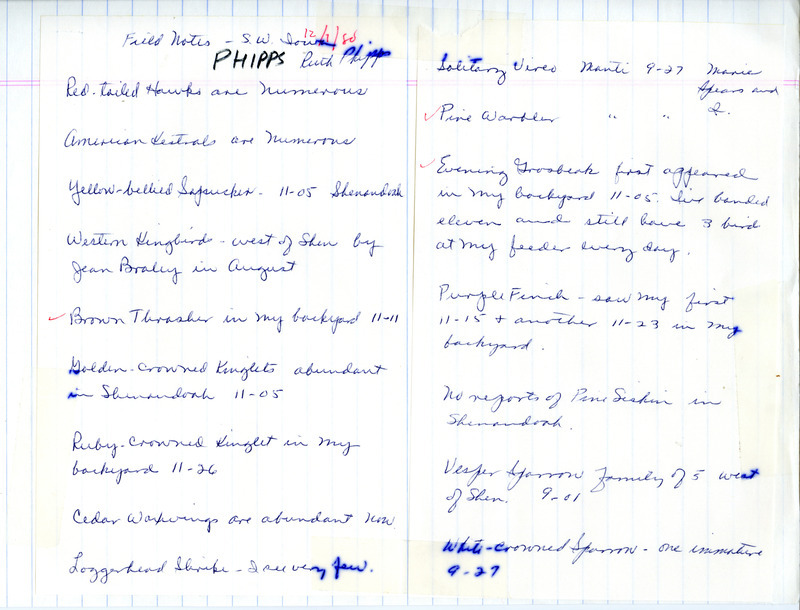 Field Notes - S.W. Iowa 12/1/80
PHIPPS Ruth Phipps
Red-tailed Hawks are numerous
American Kestrals are numerous
Yellow-bellied Sapsucker - 11-05 Shenandoah
Western Kingbird - west of Shen by
Jean Braley in August
✓ Brown Thrasher in my backyard 11-11
Golden-crowned Kinglets abundant
in Shenandoah 11-05
Ruby-crowned Kinglet in my
backyard 11-26
Cedar Waxwings are abundant now.
Loggerhead Shrike - I see very few.
Solitary Vireo Manti 9-27 Marie
Spears and
I.
✓ Pine Warbler " "
✓ Evening Grosbeak first appeared
in my backyard 11-05. I've banded
eleven and still have 3 bird
at my feeder every day.
Purple Finch - saw my first
11-15 + another 11-23 in my
backyard.
No reports of Pine Siskin in
Shenandoah.
Vesper Sparrow family of 5 west
of Shen. 9-01
White-crowned Sparrow - one immature
9-27